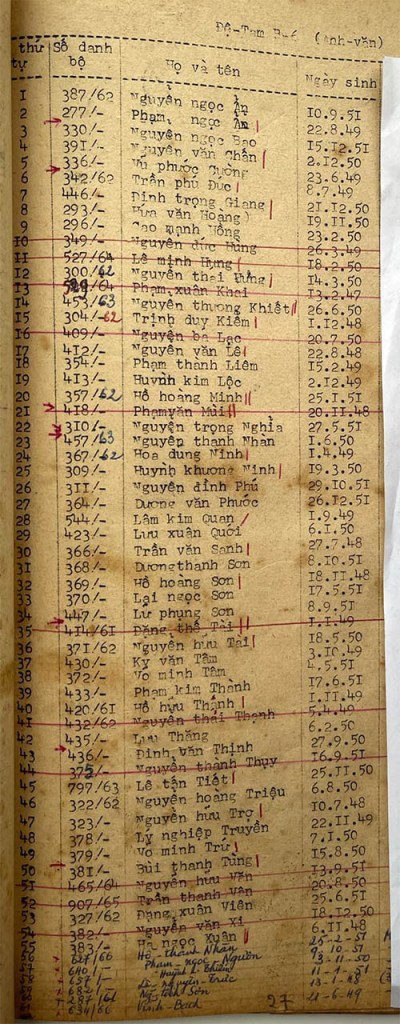 Đệ-Tam B-6 (Anh-văn)
thứ tự Số danh bộ Họ và tên Ngày sinh
I 387/62 Nguyễn ngọc Ẩn 10.9.51
2 277/- Phạm ngọc Ẩn 22.8.49
3 330/- Nguyễn ngọc Bảo 15.12.51
4 391/- Nguyễn văn Chẩn 2.12.50
5 336/- Vũ phước Cường 23.6.49
6 342/62 Trần phú Đức 8.7.49
7 446/- Đinh trọng Giang 21.12.50
8 293/- Hứa văn Hoàng 19.11.50
9 296/- Cao mạnh Hồng 23.2.50
10 349/- Nguyễn đức Hùng 26.3.49
II 527/64 Lê minh Hưng 18.2.50
12 300/62 Nguyễn thai Hưng 14.3.50
13 529/64 Phạm xuân Khai 13.2.47
14 453/63 Nguyễn thượng Khiết 26.6.50
15 304/-62 Trịnh duy Kiêm 1.12.48
16 409/- Nguyễn bá Lạc 20.7.50
17 412/- Nguyễn văn Lê 22.8.48
18 354/- Phạm thanh Liêm 15.2.49
19 413/- Huỳnh kim Lộc 2.12.49
20 357/62 Hồ hoàng Minh 25.1.51
21 418/- Phạm văn Mùi 20.11.48
22 310/- Nguyễn trọng Nghĩa 27.5.51
23 457/63 Nguyễn thanh Nhàn 1.6.50
24 367/62 Hoa dung Ninh 1.4.49
25 309/- Huỳnh khương Ninh 19.3.50
26 311/- Nguyễn đình Phú 29.10.51
27 364/- Dương văn Phước 26.12.51
28 544/- Lâm kim Quan 1.9.49
29 423/- Lưu xuân Quới 6.1.50
30 366/- Trần văn Sanh 27.7.48
31 368/- Dương thanh Sơn 8.10.51
32 369/- Hồ hoàng Sơn 18.11.48
33 370/- Lại ngọc Sơn 17.5.51
34 447/- Lữ phụng Sơn 8.9.51
35 414/61 Đặng thế Tài 1.1.49
36 371/62 Nguyễn hữu Tài 18.5.50
37 430/- Kỳ văn Tâm 3.10.49
38 372/- Võ minh Tâm 4.5.51
39 433/- Phạm kim Thành 17.6.51
40 420/61 Hồ hựu Thạnh 1.11.49
41 432/62 Nguyễn thái Thạnh 5.4.49
42 435/- Lưu Thăng 6.2.50
43 436/- Đinh văn Thịnh 27.9.50
44 Nguyễn thanh Thụy 16.9.51
45 797/63 Lê tấn Tiết 25.11.50
46 322/62 Nguyễn hoàng Triệu 6.8.50
47 323/- Nguyễn hữu Trợ 10.7.48
48 378/- Lý nghiệp Truyền 22.11.49
49 379/- Võ minh Trứ 7.1.50
50 381/- Bùi thanh Tùng 15.8.50
51 465/64 Nguyễn hữu Văn 13.9.51
52 907/65 Trần thanh Vân 20.8.50
53 327/62 Đặng xuân Viên 25.6.51
54 382/- Nguyễn văn Xi 18.12.50
55 383/- Hà ngọc Xuân 6.11.48
56 Hồ thành Nhân 25-2-51
57 640/- Phạm Ngọc Nguôn
58 Huỳnh Thiên 13-11-50
59 Lê nguyên Trúc
60 287/61 Sơn
61 634/60 Vĩnh-Bích 21-6-49
27